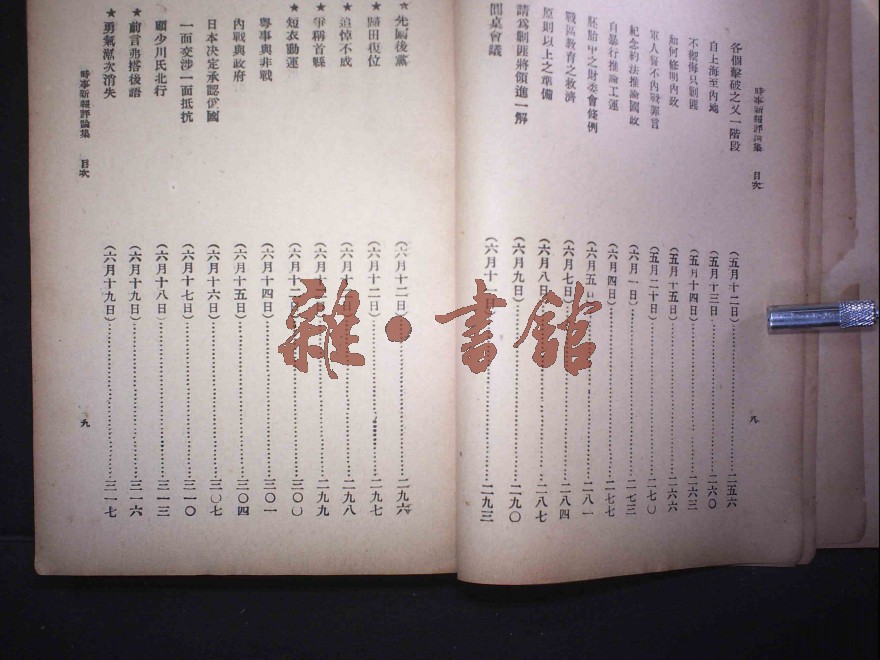 時事新報評論集 目次
各個擊破之又一階段 (五月十二日) 二五六
自上海至內地 (五月十三日) 二六〇
不釋侮只剿匪 (五月十四日) 二六三
如何修明內政 (五月十五日) 二六六
軍人宣不內戰罪言 (五月二十日) 二七〇
紀念約法推論國政 (六月一日) 二七三
自暴行推論工運 (六月四日) 二七七
胚胎中之財委會條例 (六月五日) 二八一
戰區教育之救濟 (六月七日) 二八四
原則以上之準備 (六月八日) 二八七
請為剿匪將領進一解 (六月九日) 二九〇
圓桌會議 二九三
八
時事新報評論集 目次
★先國後黨 (六月十二日) 二九六
★歸田復位 (六月十二日) 二九七
★追悼不成 二九八
★爭稱首縣 二九九
★短衣動運 三〇〇
粵事與非戰 (六月十四日) 三〇一
內戰與政府 (六月十五日) 三〇四
日本決定承認伪國 (六月十六日) 三〇七
一面交涉一面抵抗 (六月十七日) 三一〇
顧少川氏北行 (六月十八日) 三一三
★前言弗搭後語 (六月十九日) 三一六
★勇氣漸次消失 (六月十九日) 三一七
九
雜·書館